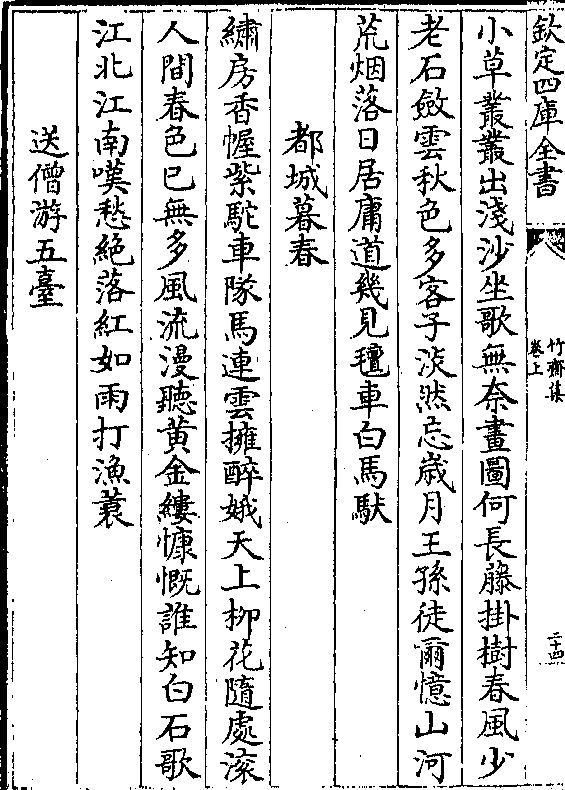 欽定四庫全書
竹齋集
卷上
二十四
小草叢叢出淺沙坐歌無奈畫圖何長藤掛樹春風少
老石斂雲秋色多客子淡然忘歲月王孫徒爾憶山河
荒烟落日居庸道幾見氊車白馬馱
都城暮春
繡房香幄紫駝車隊馬連雲擁醉娥天上栁花隨處滚
人間春色已無多風流漫聽黃金縷慷慨誰知白石歌
江北江南嘆愁絶落紅如雨打漁蓑
送僧游五臺